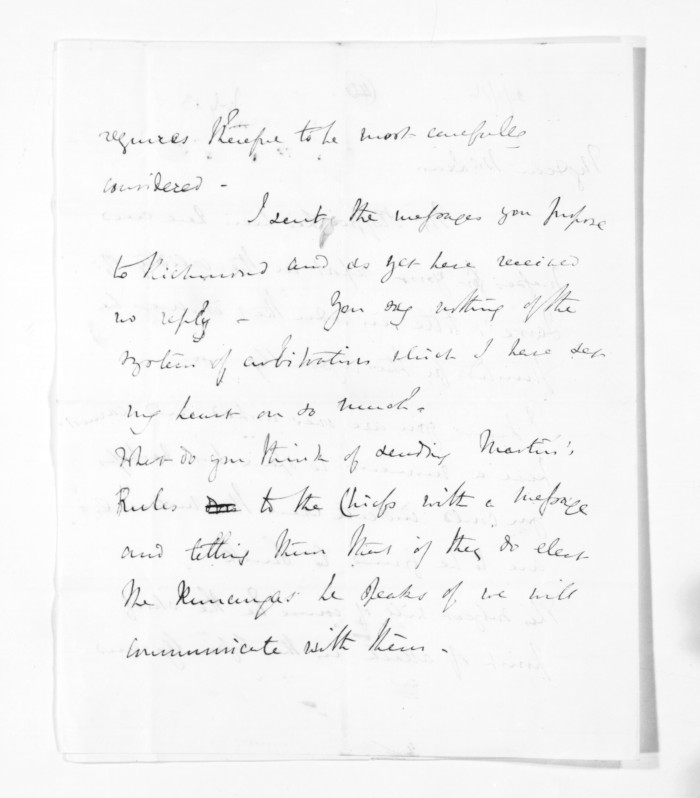 requires therefore to be most carefully
considered -
I sent the messages you propose
to Richmond and as yet have received
no reply - You say nothing of the
system of arbitration which I have set
my heart on so much.
What do you think of sending Martin's
Rules to the Chiefs with a message
and telling them that if they do elect
the Runangas he speaks of we will
communicate with them -